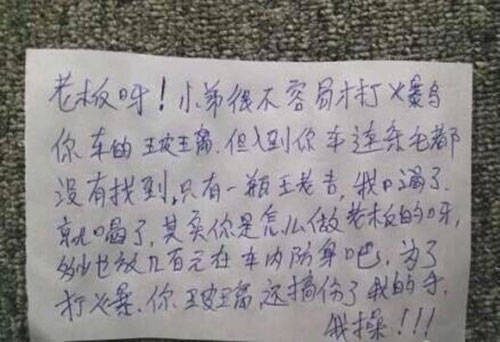 老板呀！小弟很不容易才打爆
你车的玻璃.但入到你车连条毛都
没有找到,只有一瓶王老吉,我口渴了.
就喝了,其实你是怎么做老板的呀,
多少也放几百元在车内防身吧.为了
打爆.你玻璃,还搞伤了我的手.
我操!!!